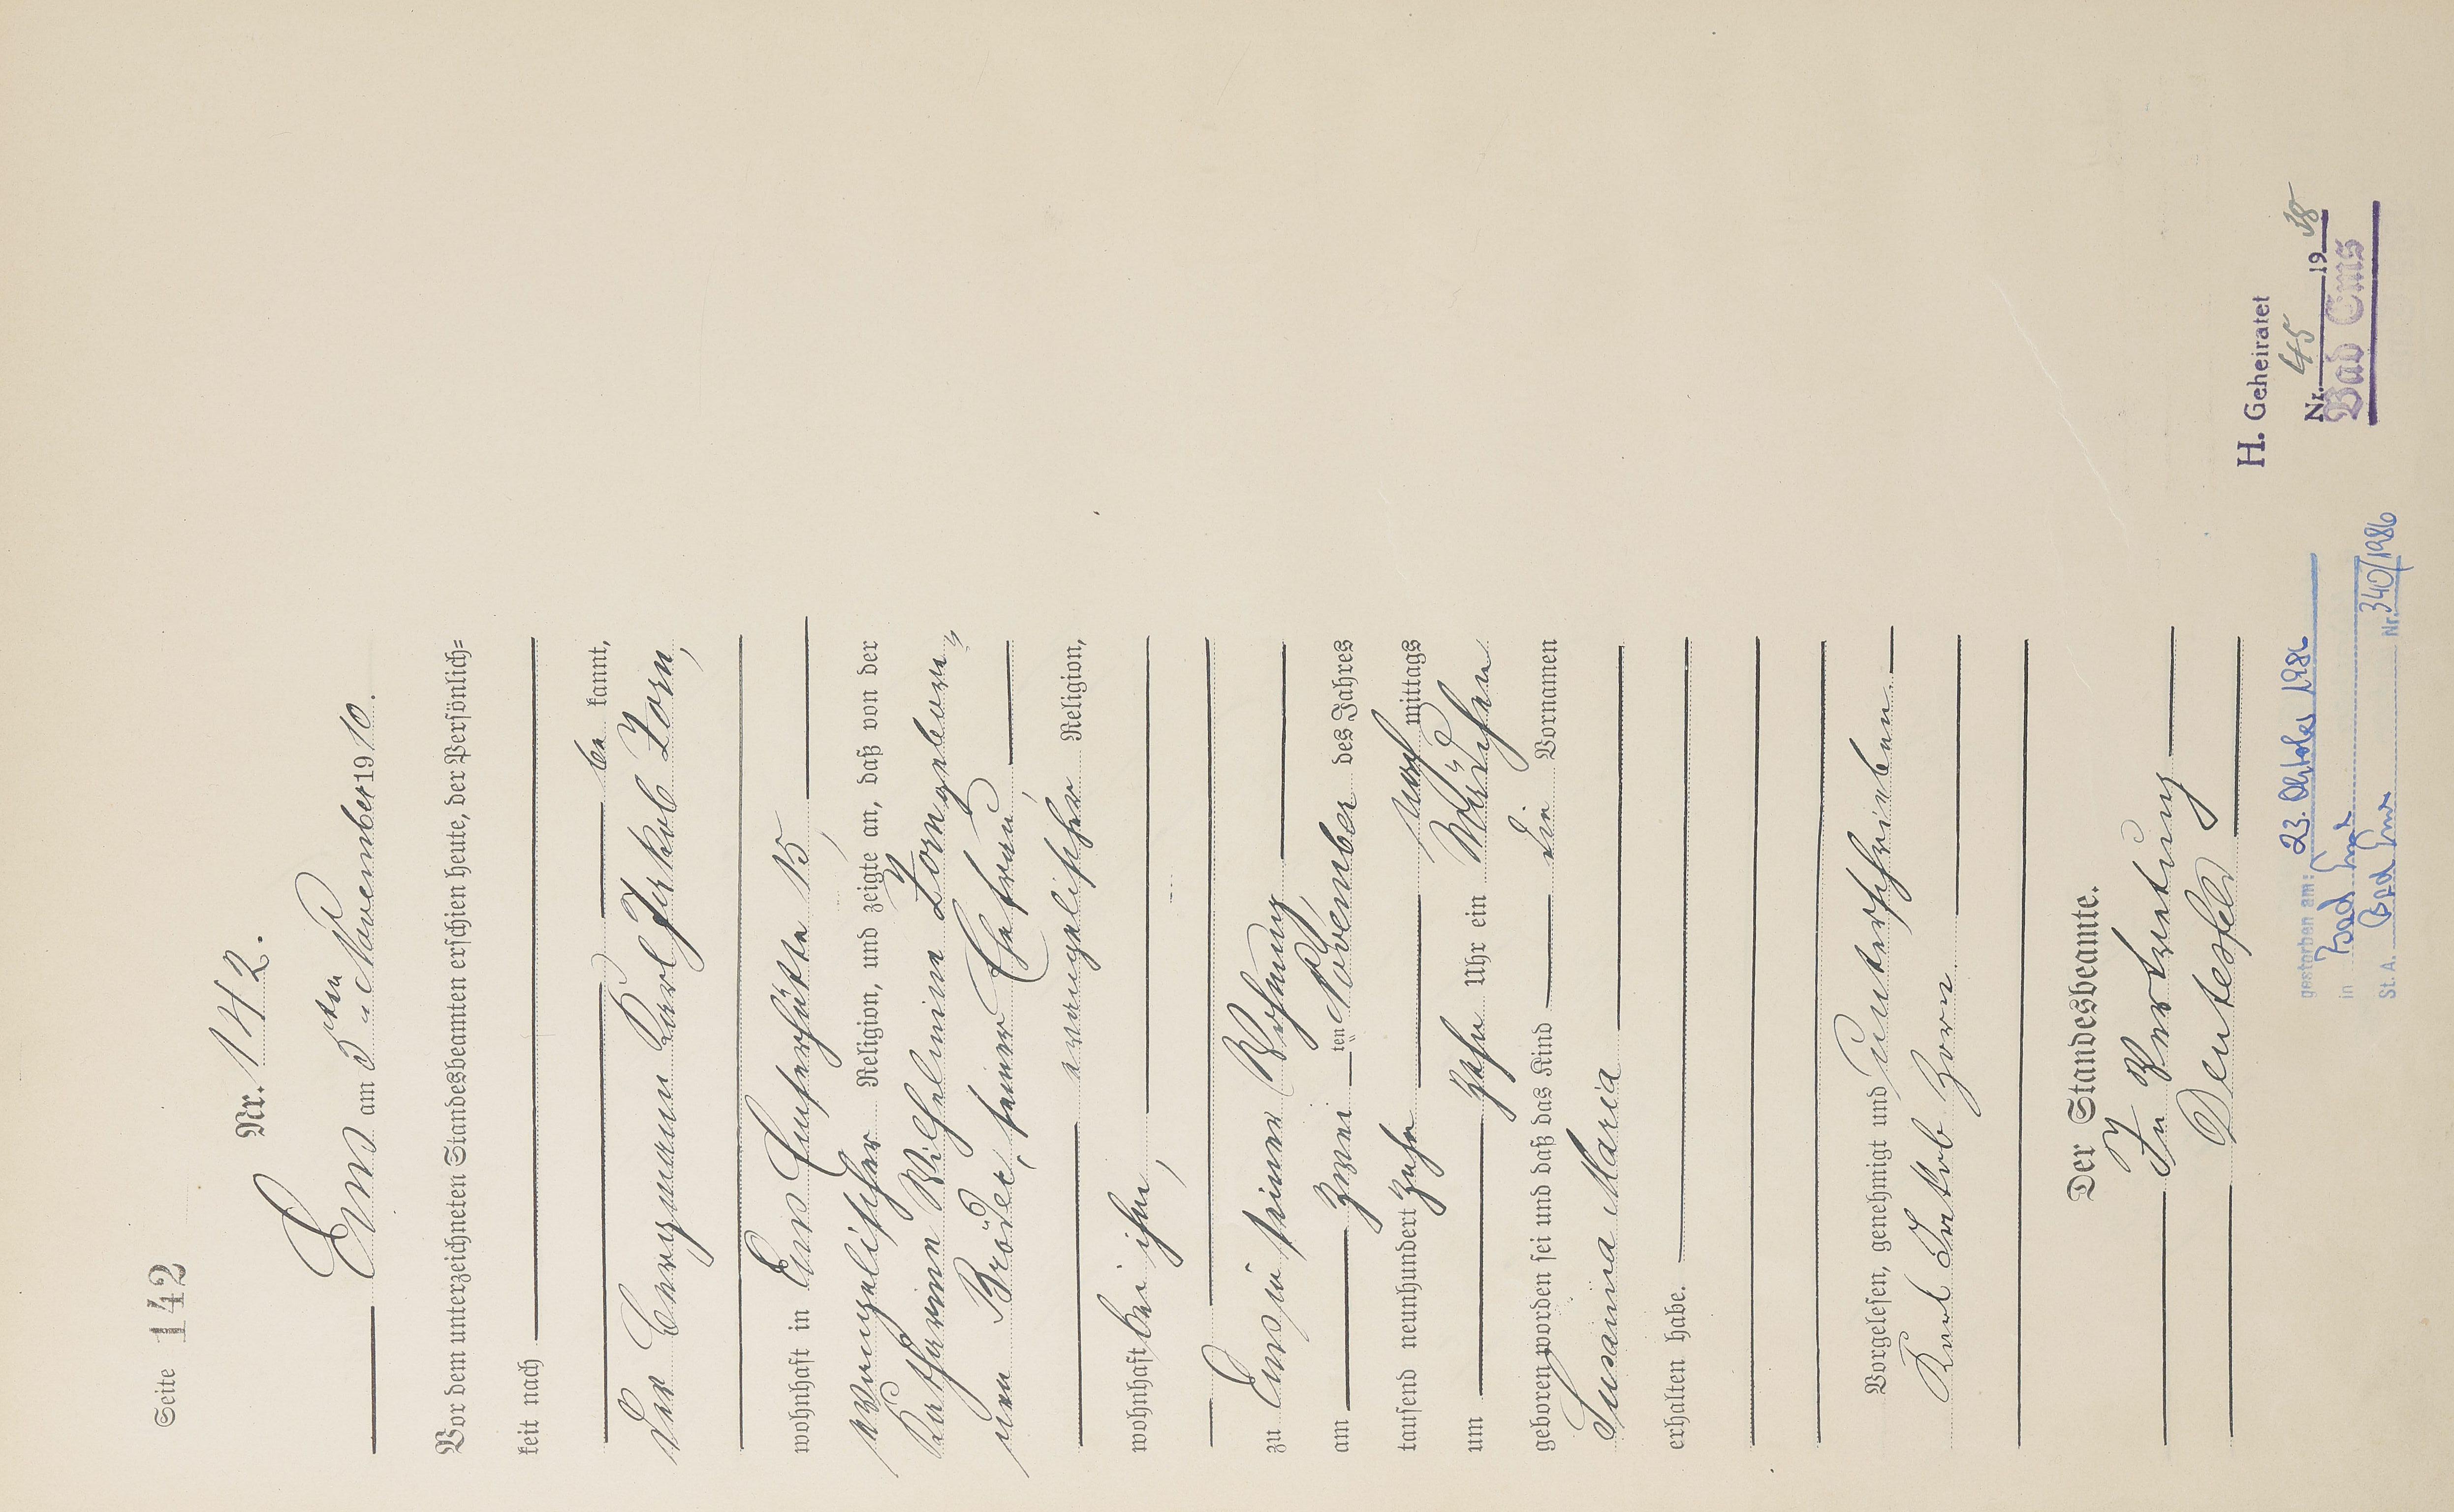 Seite 142
Nr. 142.
Ems am 5ten November 1910.
Vor dem unterzeichneten Standesbeamten erschien heute, der Persönlich=
keit nach
be kannt,
der Bergmann Karl Jakob Zorn,
wohnhaft in Ems Emserhütte 15,
evangelischer Religion, und zeigte an, daß von der
Katharine Wilhelmine Zorn gebore-
nen Bröder, seiner Ehefrau,
evangelischer Religion,
wohnhaft bei ihm,
zu Ems in seiner Wohnung
am zwei ten November des Jahres
tausend neunhundert zehn nach mittags
um zehn Uhr ein Mädchen
geboren worden sei und daß das Kind die Vornamen
Susanna Maria
erhalten habe.
Vorgelesen, genehmigt und unterschrieben.
Karl Jakob Zorn
Der Standesbeamte.
In Vertretung
gestorben am: 23. Oktober 1986
in Bad Ems
St. A. Bad Ems Nr. 340/1986
H. Geheiratet
Nr. 45 1938
Bad Ems